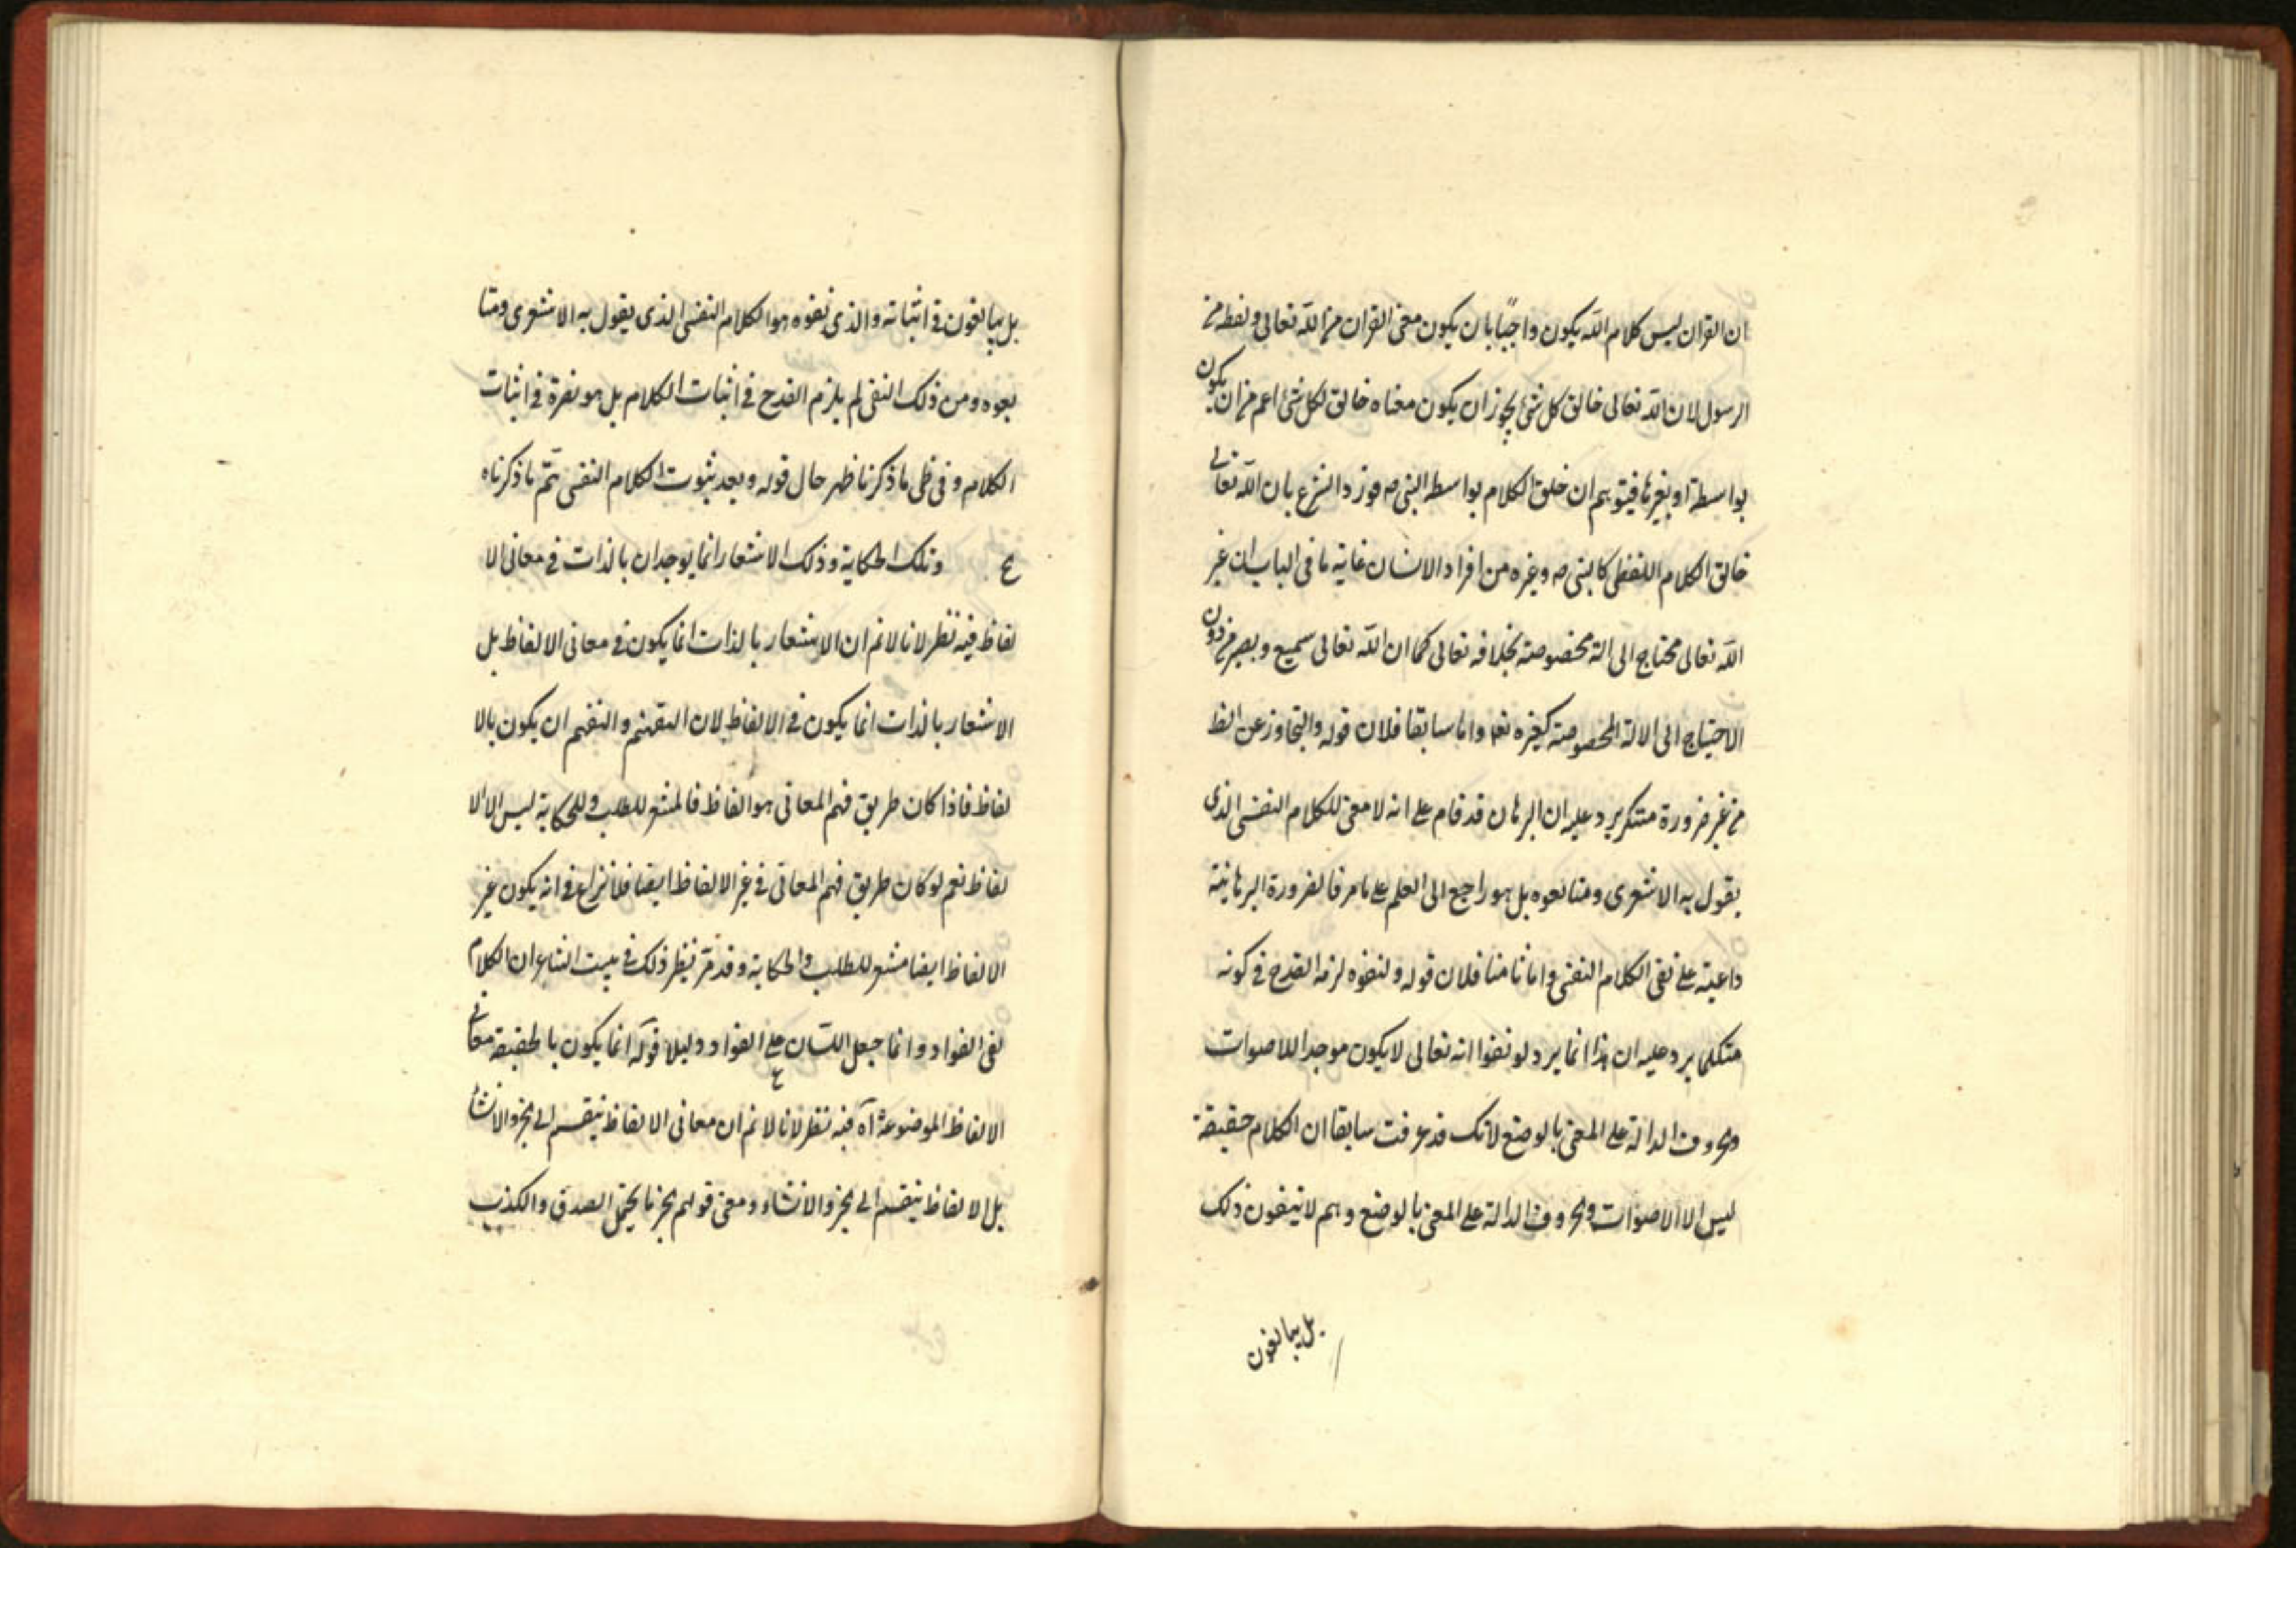 ان القران ليس كلام الله يكون واجبًا بان يكون معنى القران من الله تعالى ولفظه من
الرسول لان الله تعالى خالق كل شئ يجوز ان يكون معناه خالق لكل شئ اعم من ان يكون
بواسطة او بغيرها فيتوهم ان خلق الكلام بواسطه النبى ص فورد الشرع بان الله تعالى
خالق الكلام اللفظى كالنبى ص وغيره من افراد الانسان غاية ما فى الباب ان غير
الله تعالى محتاج الى الة مخصوصة بخلافه تعالى كما ان الله تعالى سميع وبصير من دون
الاحتياج الى الالة المخصوصة كغيره تعا واما سابقا فلان قوله والتجاوز عن الظ
من غير ضرورة مستكر يرد عليه ان البرهان قد قام على انه لا معنى للكلام النفسى الذى
يقول به الاشعرى ومتابعوه بل هو راجع الى العلم على ما مر فالضرورة البرهانية
داعية على نفى الكلام النفسى واما ثامنا فلان قوله ولنفوه لزمه القدح فى كونه
متكلما يرد عليه ان هذا انما يرد لو نفوا انه تعالى لا يكون موجدا للاصوات
والحروف الدالة على المعنى بالوضع لانك قد عرفت سابقا ان الكلام حقيقة
ليس الا الاصوات والحروف الدالة على المعنى بالوضع وهم لا ينفون ذلك
بل يبالغون
بل يبالغون فى اثباته والذى نفوه هو الكلام النفسى الذى يقول به الاشعرى ومتا
بعوه ومن ذلك النفى لم يلزم القدح فى اثبات الكلام بل هو نصرة فى اثبات
الكلام وفى ظل ما ذكرنا ظهر حال قوله وبعد ثبوت الكلام النفسى تم ما ذكرناه
ع وتلك الحكاية وذلك الاشعار انما يوجدان بالذات فى معانى الا
لفاظ فيه نظر لانا لا نم ان الاشعار بالذات انما يكون فى معانى الالفاظ بل
الاشعار بالذات انما يكون فى الالفاظ لان التفهيم والتفهم ان يكون بالا
لفاظ فاذا كان طريق فهم المعانى هو الفاظ فالمشعر للطلب وللحكاية ليس الا الا
لفاظ نعم لو كان طريق فهم المعانى فى غير الالفاظ ايضا فلا نزاع فى انه يكون غير
الالفاظ ايضا مشعر للطلب والحكاية وقد مر نظير ذلك فى بيت الشاعر ان الكلام
لفى الفواد وانما جعل اللسان على الفواد دليلا قوله انما يكون بالحقيقة معانى
الالفاظ الموضوعة آه فيه نظر لانا لا نم ان معانى الالفاظ ينقسم الى الخبر والانشا
بل الالفاظ ينقسم الى الخبر والانشاء ومعنى قولهم الخبر ما يحتمل الصدق والكذب